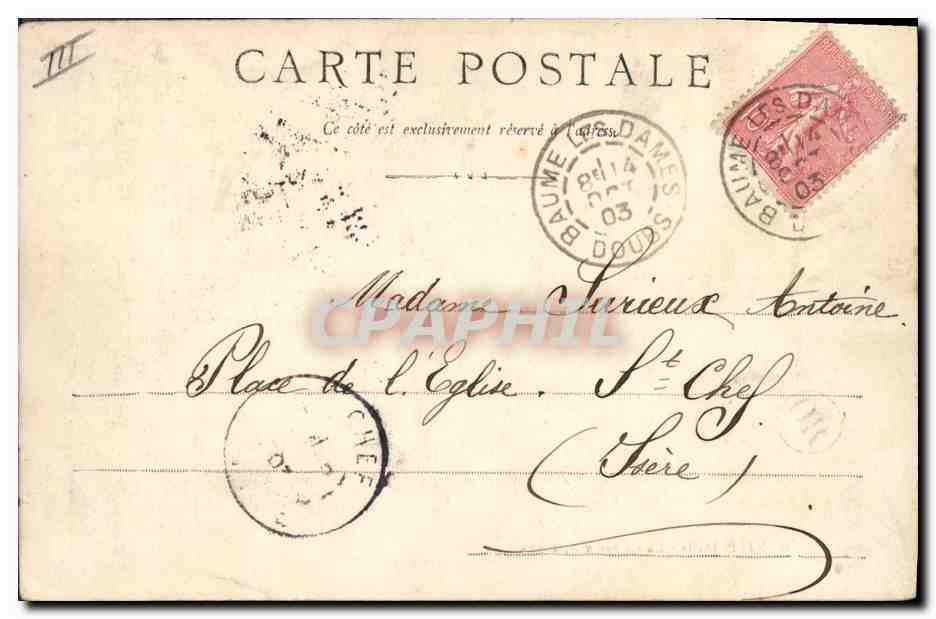 III
CARTE POSTALE
Ce côté est exclusivement réservé à l'adresse
BAUME LES DAMES
14
OCT
03
DOUBS
BAUME LES DAMES
03
Madame Surieux Antoine
Place de l'Eglise. St Chef
(Isère)
CHEF
OR
CPAPHIL